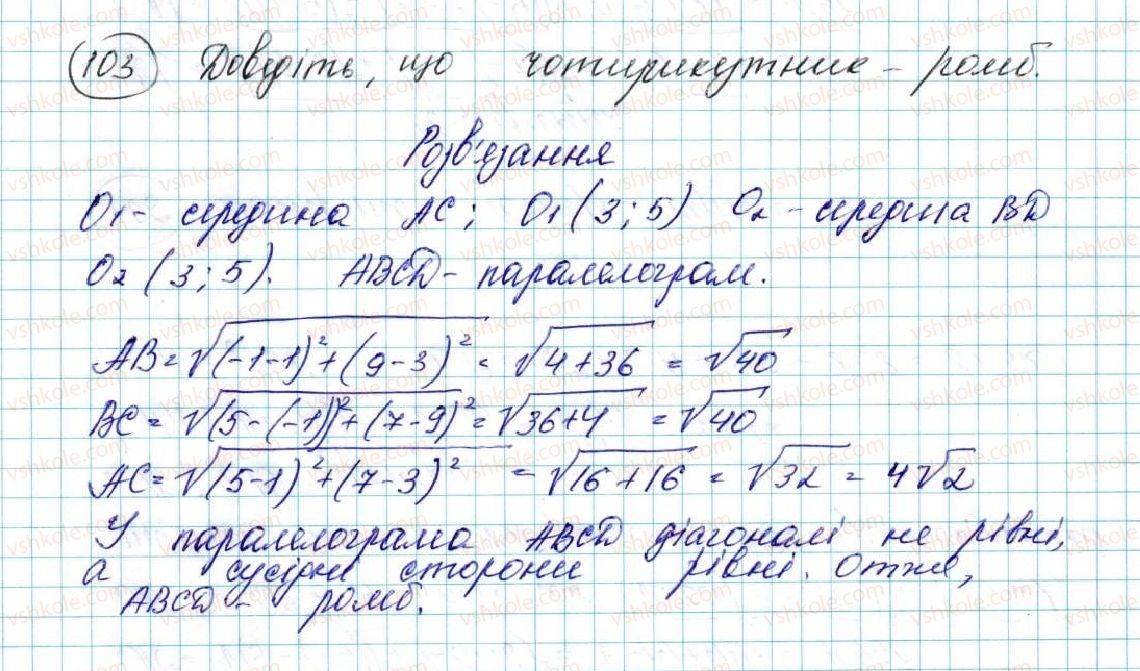 103 Доведіть, що чотирикутник - ромб.
Розв'язання
O1 - середина AC; O1 (3; 5) O2 - середина BD
O2 (3; 5). ABCD - паралелограм.
AB = √((-1-1)² + (9-3)²) = √(4+36) = √40
BC = √((5-(-1))² + (7-9)²) = √(36+4) = √40
AC = √((5-1)² + (7-3)²) = √(16+16) = √32 = 4√2
У паралелограма ABCD діагоналі не рівні,
а сусідні сторони рівні. Отже,
ABCD - ромб.